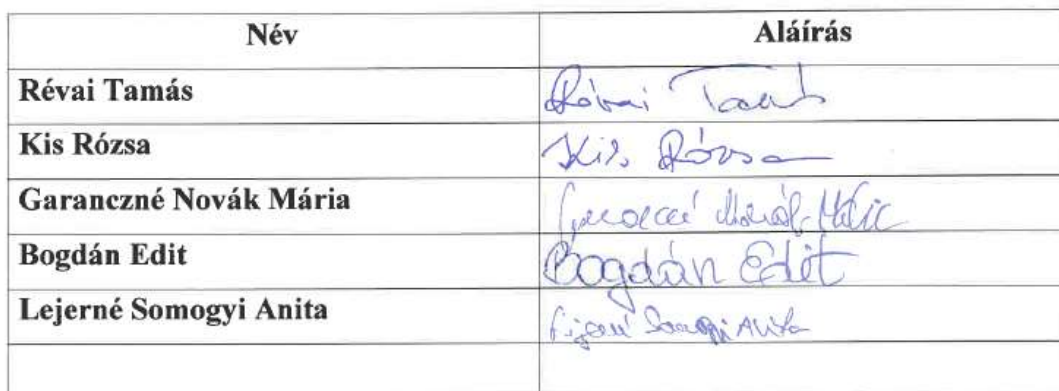 Név Aláírás
Révai Tamás Révai Tamás
Kis Rózsa Kis Rózsa
Garanczné Novák Mária Garanczné Novák Mária
Bogdán Edit Bogdán Edit
Lejerné Somogyi Anita Lejerné Somogyi Anita